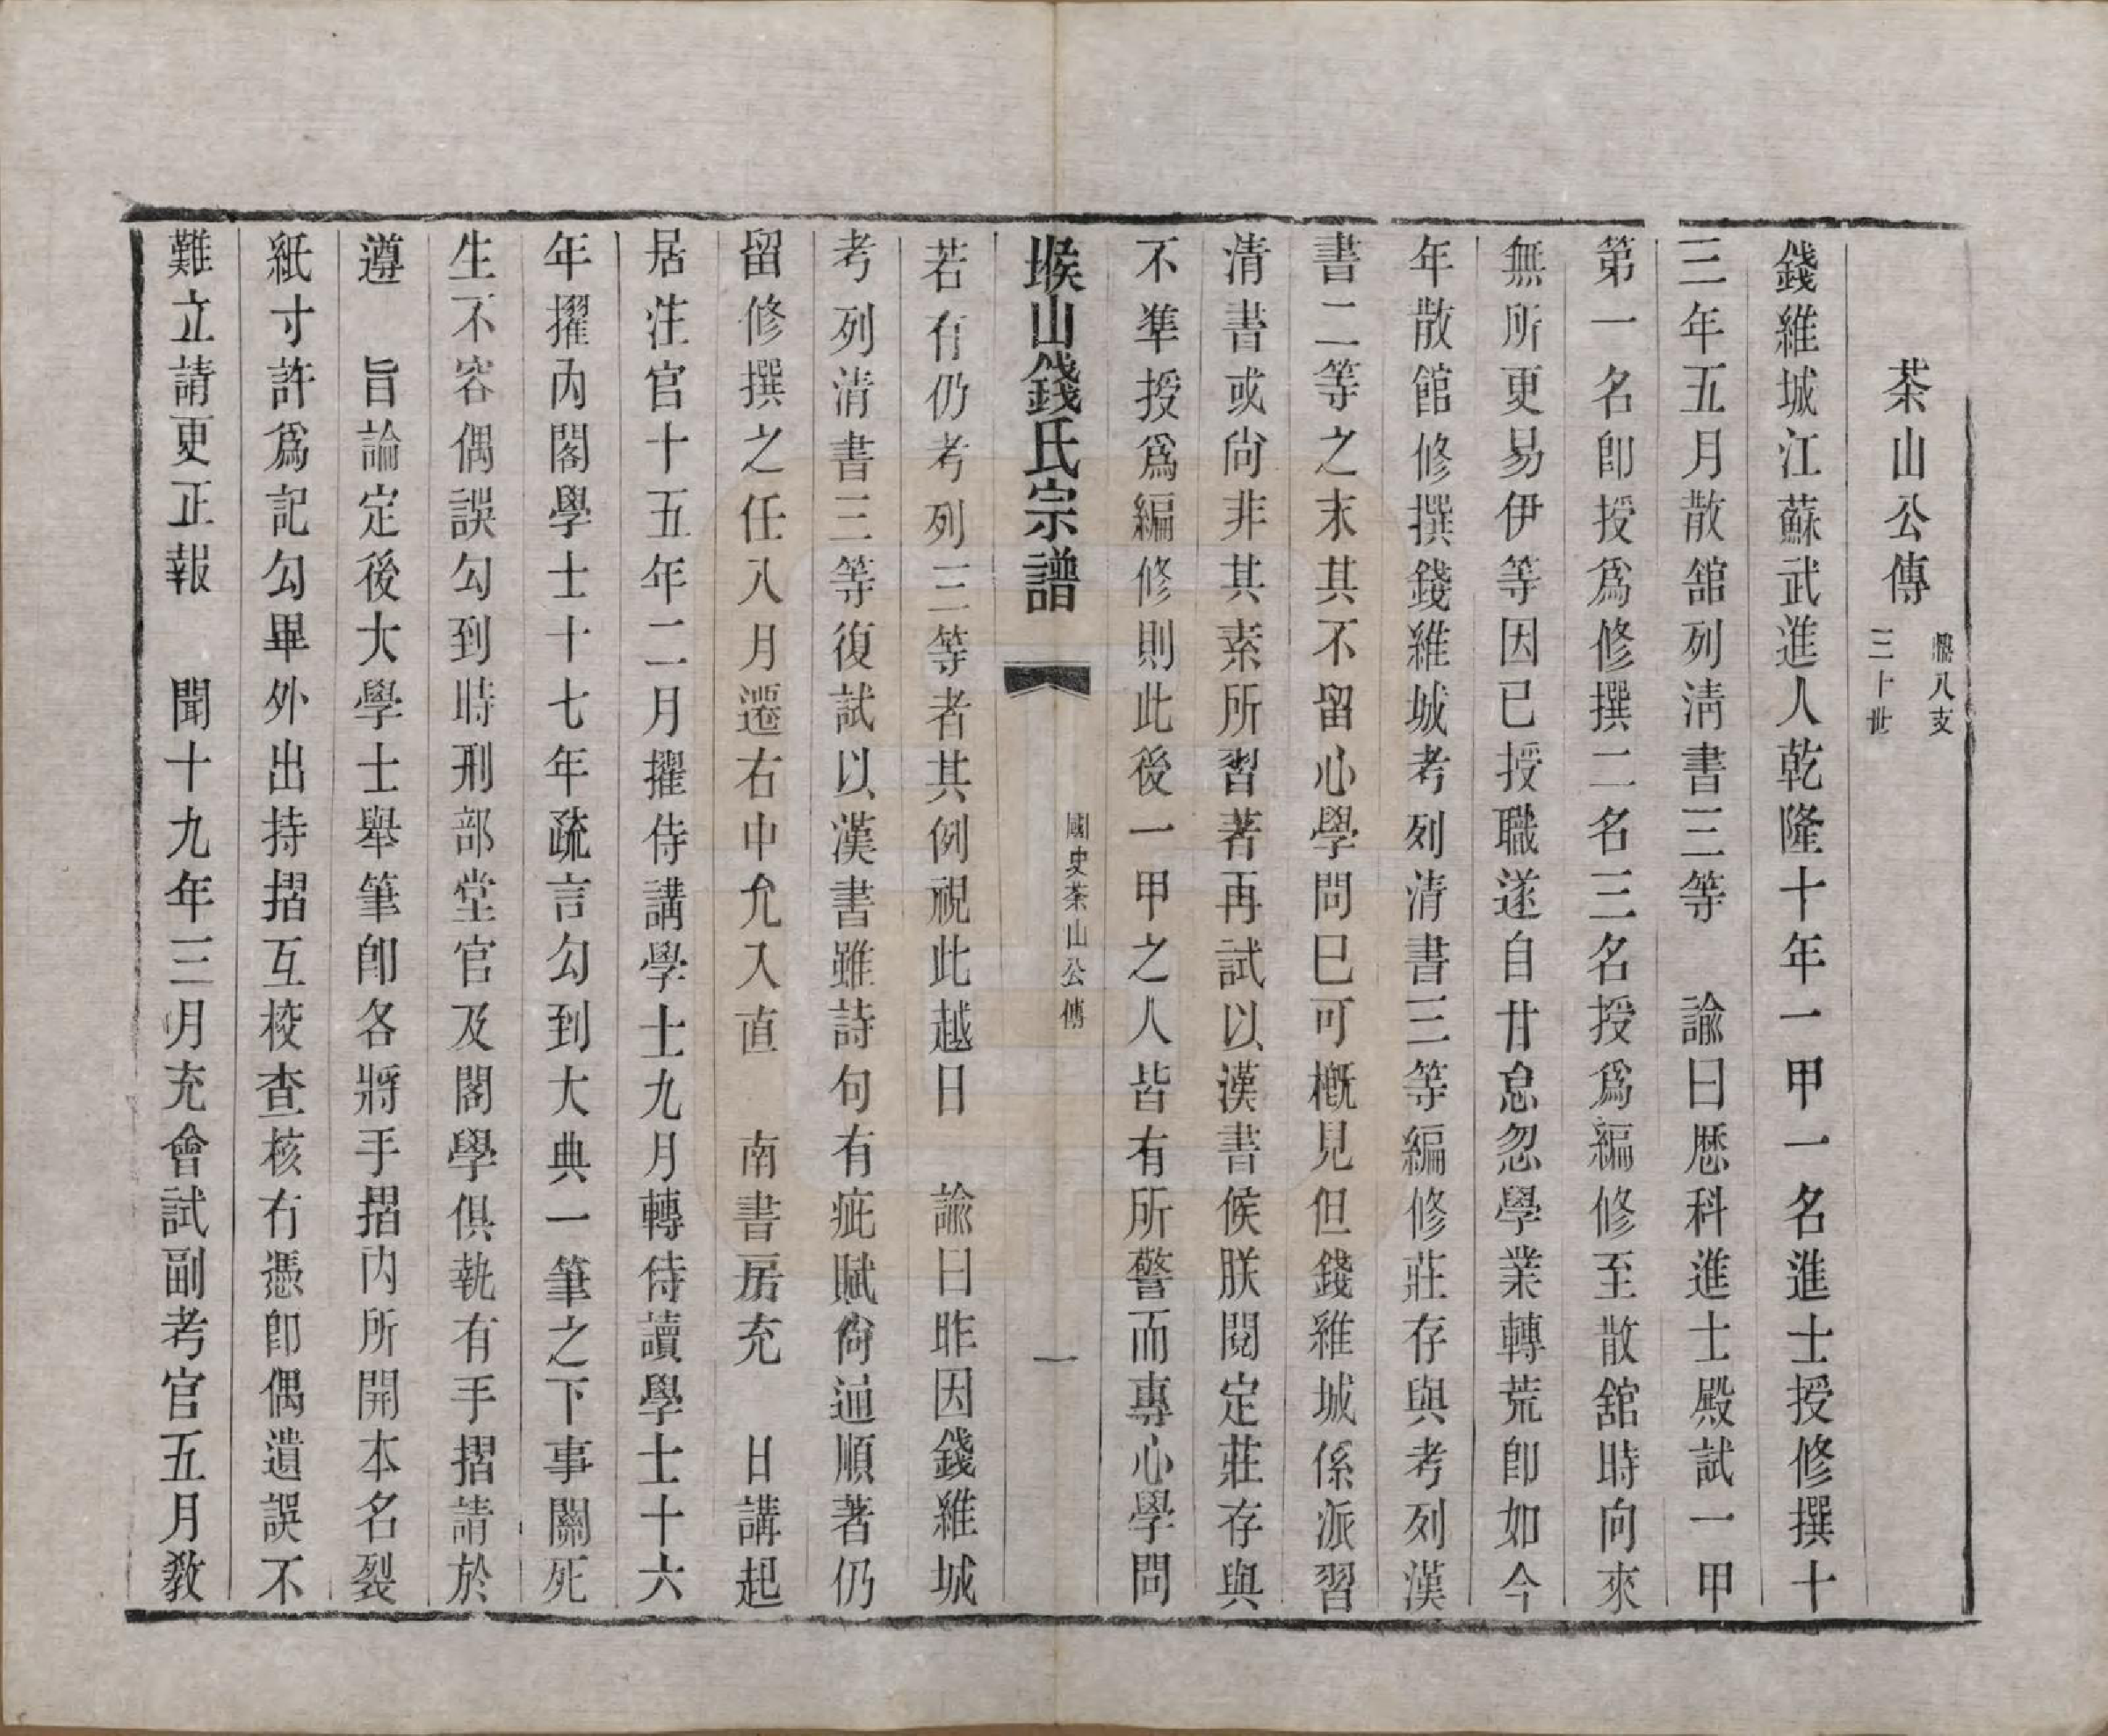 茶山公傳 鵬八支
三十世
錢維城江蘇武進人乾隆十年一甲一名進士授修撰十
三年五月散舘列淸書三等　諭曰歷科進士殿試一甲
第一名卽授爲修撰二名三名授爲編修至散舘時向來
無所更易伊等因已授職遂自甘怠忽學業轉荒卽如今
年散館修撰錢維城考列清書三等編修莊存與考列漢
書二等之末其不留心學問已可槪見但錢維城係派習
清書或尙非其素所習著再試以漢書候朕閱定莊存與
不準授爲編修則此後一甲之人皆有所警而專心學問
堠山錢氏宗譜
國史茶山公傳
一
若有仍考列三等者其例視此越日　諭曰昨因錢維城
考列清書三等復試以漢書雖詩句有疵賦尙通順著仍
留修撰之任八月遷右中允入直　南書房充　日講起
居注官十五年二月擢侍講學士九月轉侍讀學士十六
年擢內閣學士十七年疏言勾到大典一筆之下事關死
生不容偶誤勾到時刑部堂官及閣學俱執有手摺請於
遵　旨論定後大學士舉筆卽各將手摺內所開本名裂
紙寸許爲記勾畢外出持摺互校查核有憑卽偶遺誤不
難立請更正報　聞十九年三月充會試副考官五月敎